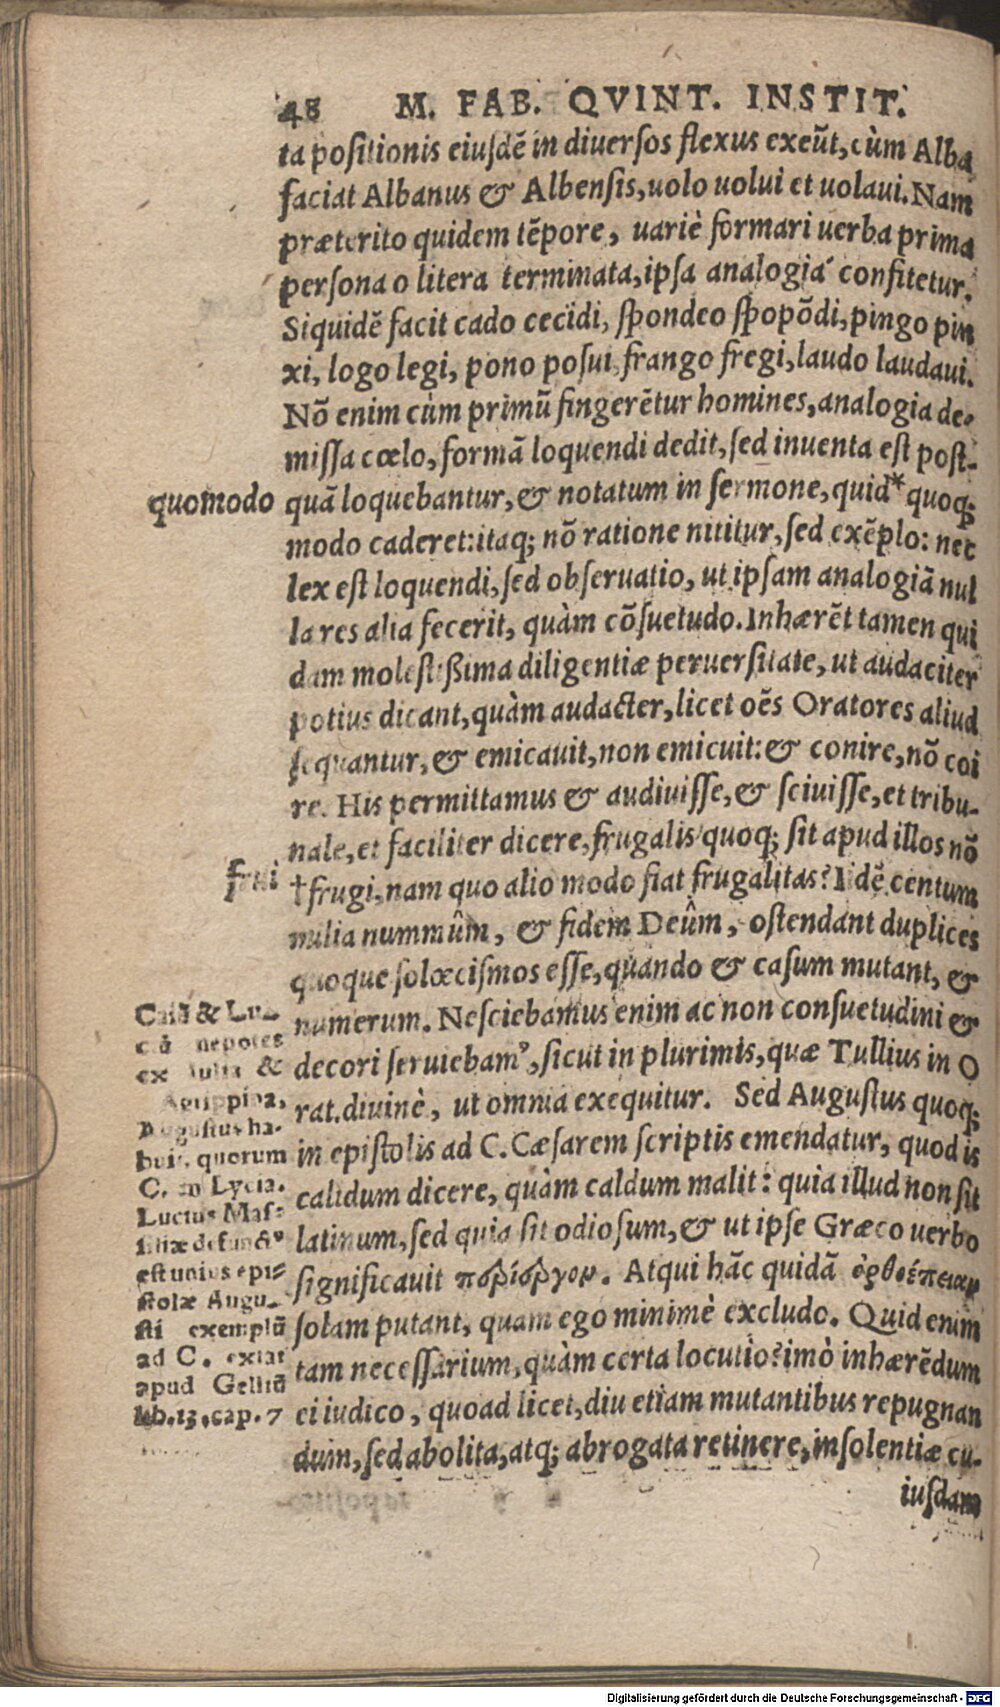 48 M. FAB. QVINT. INSTIT.
ta positionis eiusdē in diuersos flexus exeūt, cùm Alba
faciat Albanus & Albensis, uolo uolui et uolaui. Nam
præterito quidem tēpore, uariè formari uerba prima
persona o litera terminata, ipsa analogia confitetur.
Siquidē facit cado cecidi, spondeo spopōdi, pingo pin
xi, logo legi, pono posui, frango fregi, laudo laudaui.
Nō enim cùm primū fingerētur homines, analogia de-
missa cœlo, formā loquendi dedit, sed inuenta est post-
quomodo
quā loquebantur, & notatum in sermone, quid* quoq;
modo caderet: itaq; nō ratione nititur, sed exēplo: nec
lex est loquendi, sed obseruatio, ut ipsam analogiā nul
la res alia fecerit, quàm cōsuetudo. Inhærēt tamen qui
dam molestißima diligentiæ peruersitate, ut audaciter
potius dicant, quàm audacter, licet oēs Oratores aliud
sequantur, & emicauit, non emicuit: & conire, nō coi
re. His permittamus & audiuisse, & sciuisse, et tribu-
nale, et faciliter dicere, frugalis quoq; sit apud illos nō
frui
†frugi, nam quo alio modo fiat frugalitas? Idē centum
milia nummûm, & fidem Deûm, ostendant duplices
quoque solœcismos esse, quando & casum mutant, &
numerum. Nesciebamus enim ac non consuetudini &
decori seruiebam⁹, sicut in plurimis, quæ Tullius in O
rat. diuinè, ut omnia exequitur. Sed Augustus quoq;
in epistolis ad C. Cæsarem scriptis emendatur, quod is
calidum dicere, quàm caldum malit: quia illud non sit
latinum, sed quia sit odiosum, & ut ipse Græco uerbo
significauit περίεργον. Atqui hāc quidā ὀρθοέπειαν
solam putant, quam ego minimè excludo. Quid enim
tam necessarium, quàm certa locutio? imò inhærēdum
ei iudico, quoad licet, diu etiam mutantibus repugnan
dum, sed abolita, atq; abrogata retinere, insolentiæ cu-
iusdam
Caiū & Lu-
ciū nepotes
ex Iulia &
Agrippina,
Augustus ha-
buit, quorum
C. in Lycia.
Lucius Mas-
siliæ defunct⁹
est unius epi-
stolæ Augu-
sti exemplū
ad C. extat
apud Gelliū
lib. 13. cap. 7
Digitalisierung gefördert durch die Deutsche Forschungsgemeinschaft - DFG